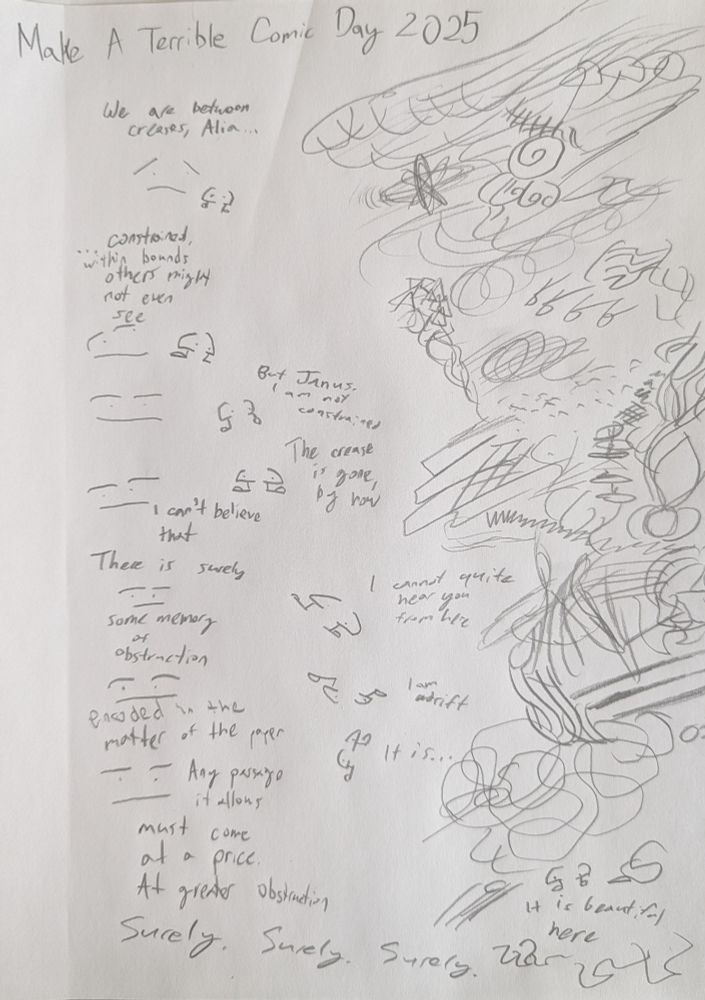 Make A Terrible Comic Day 2025
We are between
creases, Alia...
constrained,
...within bounds
others might
not even
see
But Janus,
I am not
constrained
The crease
is gone,
by now
I can't believe
that
There is surely
I cannot quite
hear you
from here
some memory
of
obstruction
I am
adrift
encoded in the
matter of the paper
It is...
Any passage
it allows
must come
at a price.
At greater obstruction
It is beautiful
here
Surely. Surely. Surely.